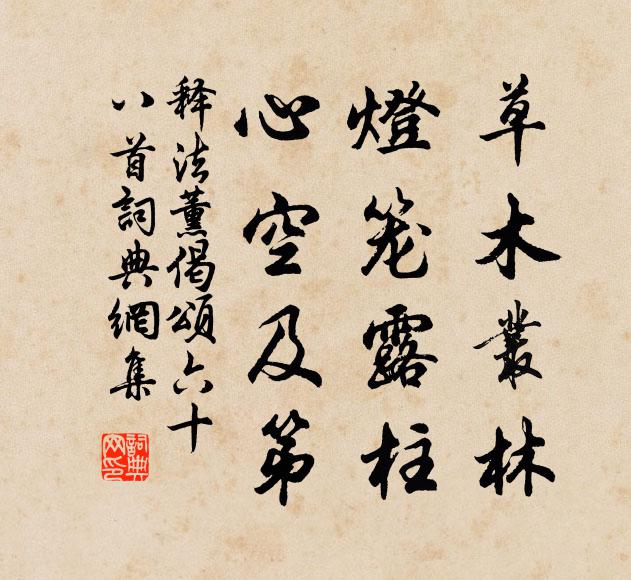 草木叢林
燈笼露柱
心空及第
释法薰偈頌六十
八首詞典網集
詞典
网印